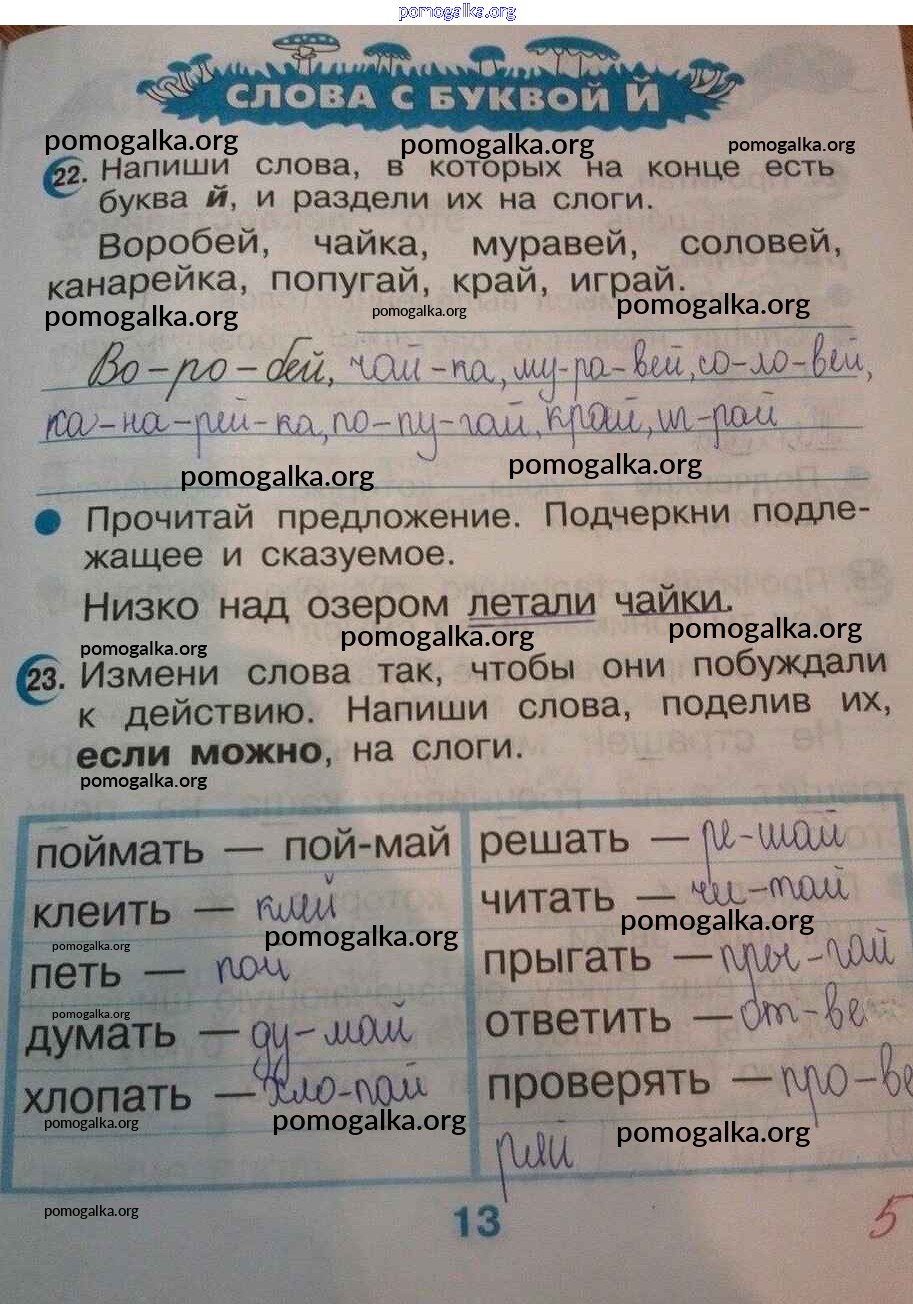 pomogalka.org
СЛОВА С БУКВОЙ Й
pomogalka.org pomogalka.org pomogalka.org
22. Напиши слова, в которых на конце есть
буква й, и раздели их на слоги.
Воробей, чайка, муравей, соловей,
канарейка, попугай, край, играй.
pomogalka.org pomogalka.org pomogalka.org
Во-ро-бей, чай-ка, му-ра-вей, со-ло-вей,
ка-на-рей-ка, по-пу-гай, край, иг-рай
pomogalka.org pomogalka.org
Прочитай предложение. Подчеркни подле-
жащее и сказуемое.
Низко над озером летали чайки.
pomogalka.org pomogalka.org pomogalka.org
23. Измени слова так, чтобы они побуждали
к действию. Напиши слова, поделив их,
если можно, на слоги.
pomogalka.org
поймать — пой-май
клеить — клей
pomogalka.org pomogalka.org
петь — пой
pomogalka.org
думать — ду-май
хлопать — хло-пай
pomogalka.org pomogalka.org
решать — ре-шай
читать — чи-тай
pomogalka.org
прыгать — пры-гай
ответить — от-ве
проверять — про-ве
ряй
pomogalka.org
pomogalka.org
13
5